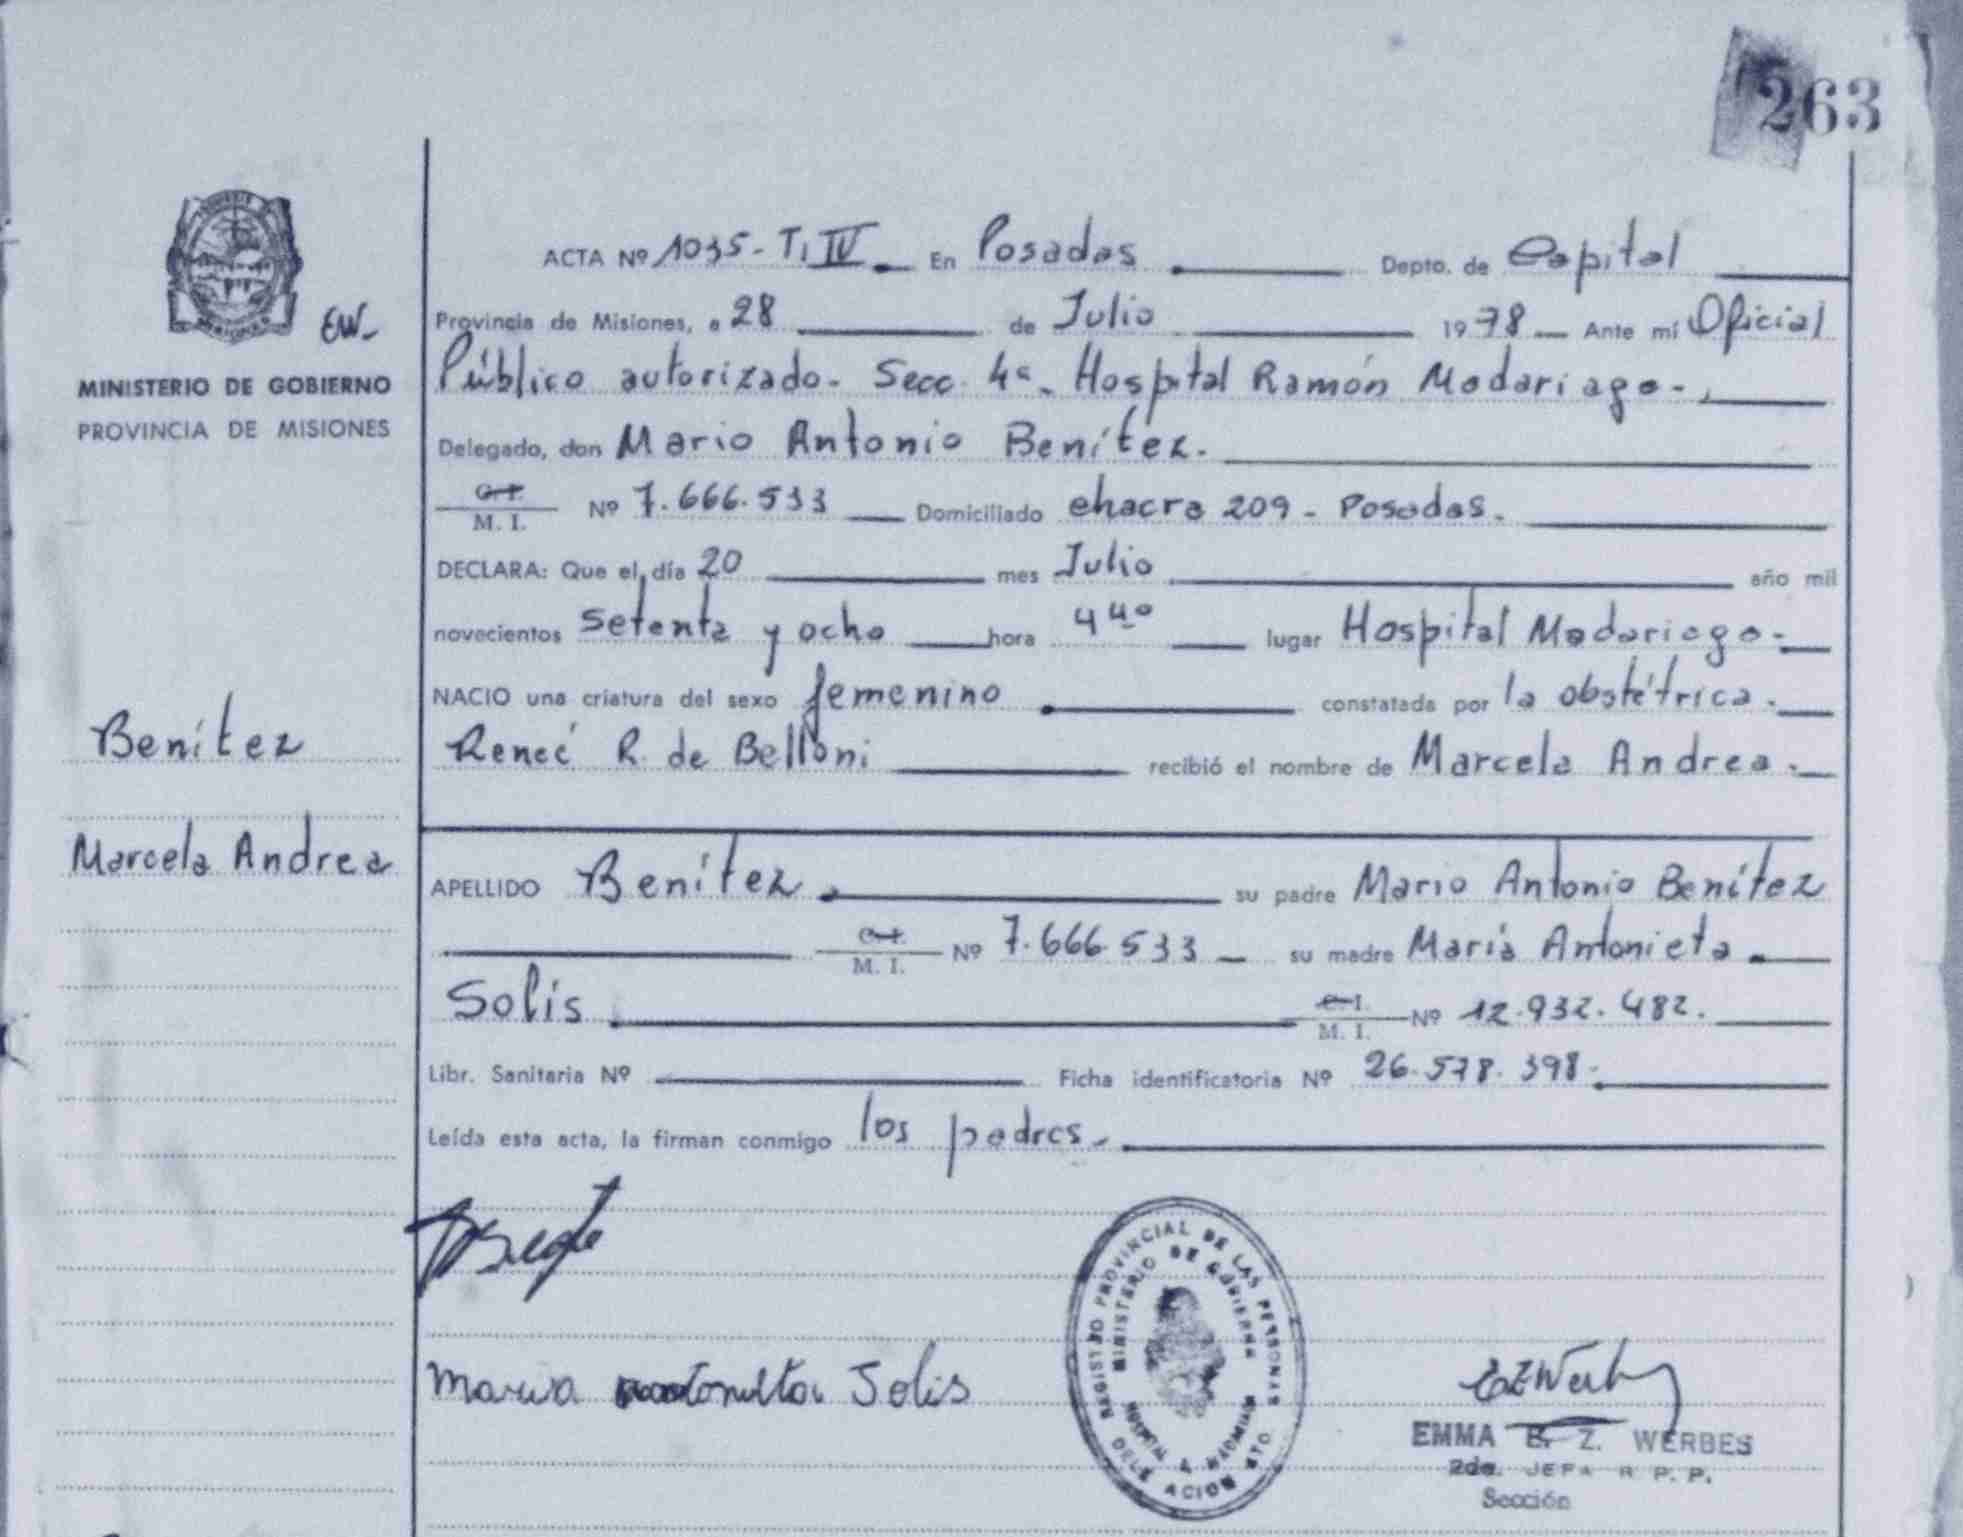 263
ACTA Nº 1035 - T. IV En Posadas Depto. de Capital
EW-
Provincia de Misiones, a 28 de Julio 1978 Ante mí Oficial
MINISTERIO DE GOBIERNO
PROVINCIA DE MISIONES
Público autorizado - Secc. 4ª - Hospital Ramón Madariaga - .
Delegado, don Mario Antonio Benítez.
C. I.
M. I. Nº 7.666.533 Domiciliado chacra 209 - Posadas.
DECLARA: Que el día 20 mes Julio año mil
novecientos setenta y ocho hora 4 40 lugar Hospital Madariaga -
NACIO una criatura del sexo femenino . constatada por la obstétrica.
Reneé R. de Belloni recibió el nombre de Marcela Andrea.
Benítez
Marcela Andrea
APELLIDO Benítez. su padre Mario Antonio Benítez
C. I.
M. I. Nº 7.666.533 su madre María Antonieta .
Solis . C. I.
M. I. Nº 12.932.482.
Libr. Sanitaria Nº Ficha identificatoria Nº 26.578.398.
Leída esta acta, la firman conmigo los padres.
Maria Solis
REGISTRO PROVINCIAL DE LAS PERSONAS
MINISTERIO DE GOBIERNO
HOSPITAL
EMMA E. Z. WERBES
2da. JEFA R. P. P.
Sección